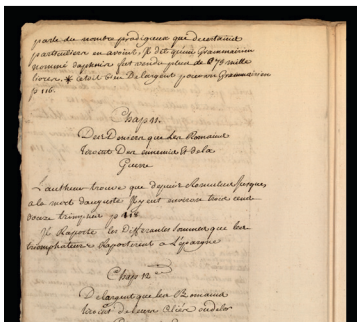 parle du nombre prodigieux que de certains
particuliers en avoient. Il dit qu'un Grammairien
nommé daphnis fut vendu plus de 678 mille
livres. * cetoit bien De largent pour un Grammairien
p 116.
Chap 11.
Des Deniers que Les Romains
tiroient Des ennemis & de la
Guerre
L'autheur trouve que depuis Romulus jusques
a la mort dauguste Il y eut environ trois cens
douze triomphes p 118
Il Raporte les differentes sommes que les
triomphateurs Raporterent a L'epargne
Chap 12
De largent que les Romains
tiroient de leurs alliés ou de leurs